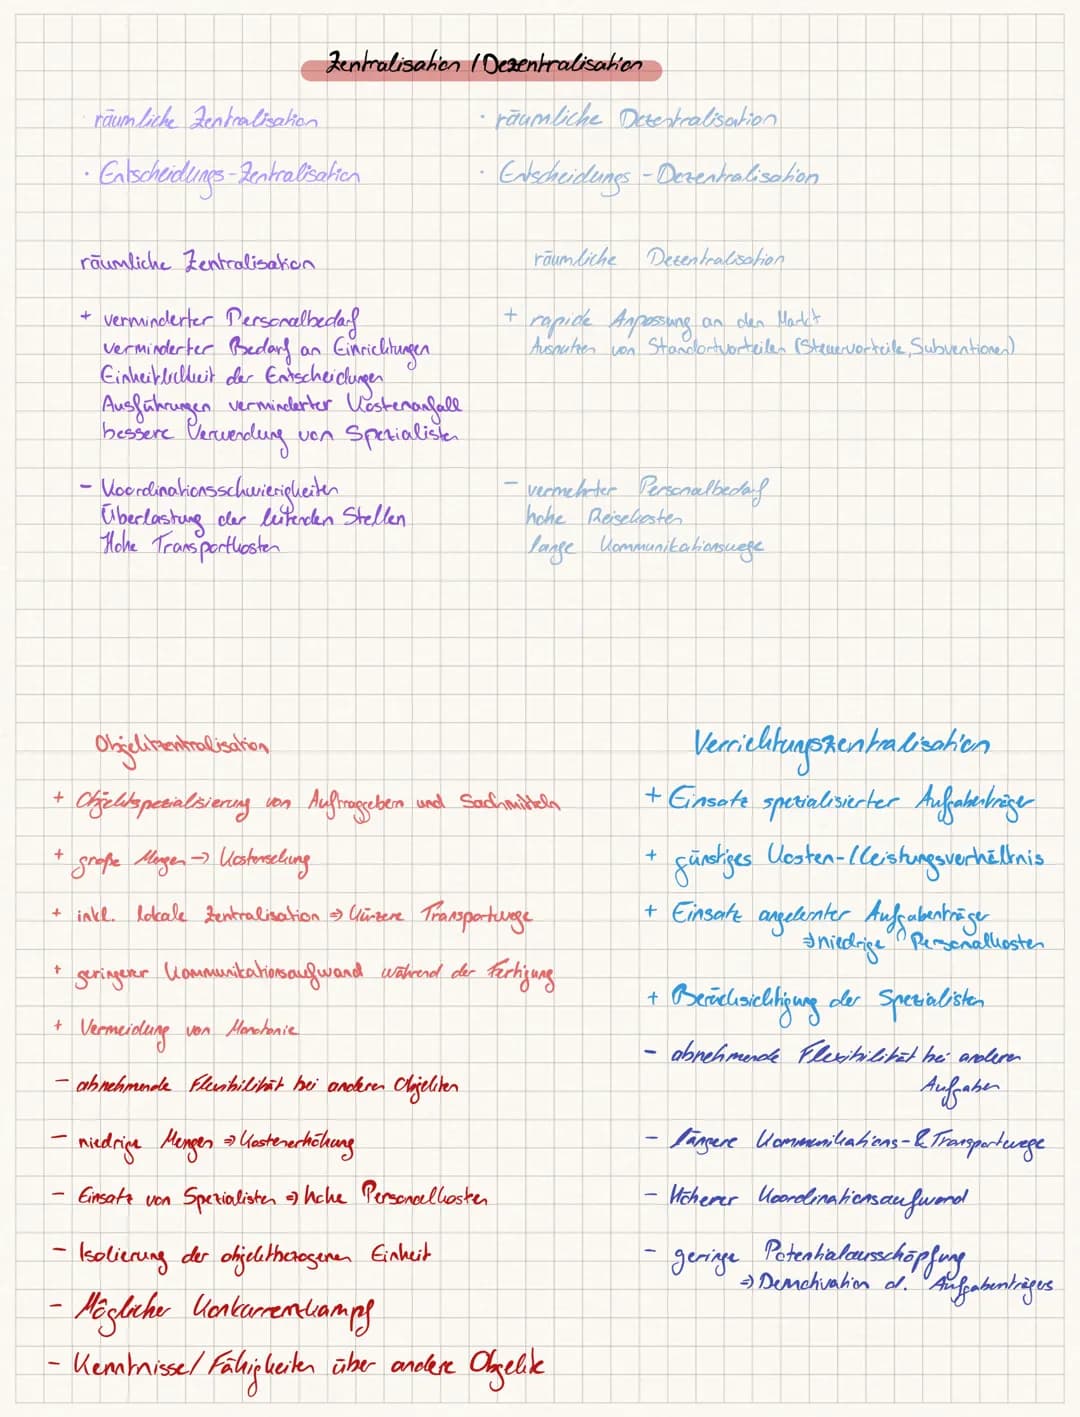 Zentralisation / Dezentralisation
räumliche Zentralisation
· Entscheidungs-Zentralisation
· räumliche Dezentralisation
· Entscheidungs-Dezentralisation
räumliche Zentralisation
+ verminderter Personalbedarf
verminderter Bedarf an Einrichtungen
Einheitlichkeit der Entscheidungen
Ausführungen verminderter Kostenanfall
bessere Verwendung von Spezialisten
- Koordinationsschwierigkeiten
Überlastung der leitenden Stellen
Hohe Transportkosten
räumliche Dezentralisation
+ rapide Anpassung an den Markt
Ausnutzen von Standortvorteilen (Steuervorteile, Subventionen)
- vermehrter Personalbedarf
hohe Reisekosten
lange Kommunikationswege
Objektzentralisation
+ Objektspezialsierung von Auftraggebern und Sachmitteln
+ große Mengen → Kostensenkung
+ inkl. lokale Zentralisation ⇒ kürzere Transportwege
+ geringerer Kommunikationsaufwand während der Fertigung
+ Vermeidung von Monotonie
- abnehmende Flexibilität bei anderen Objekten
- niedrige Mengen ⇒ Kostenerhöhung
- Einsatz von Spezialisten ⇒ hohe Personalkosten
- Isolierung der objektbezogenen Einheit
- Möglicher Konkurrenzkampf
- Kenntnisse/Fähigkeiten über andere Objekte
Verrichtungszentralisation
+ Einsatz spezialisierter Aufgabenträger
+ günstiges Kosten-/Leistungsverhältnis
+ Einsatz angelernter Aufgabenträger
⇒ niedrige Personalkosten
+ Berücksichtigung der Spezialisten
- abnehmende Flexibilität bei anderen
Aufgaben
- längere Kommunikations- & Transportwege
- Höherer Koordinationsaufwand
- geringe Potentialausschöpfung
⇒ Demotivation d. Aufgabenträgers